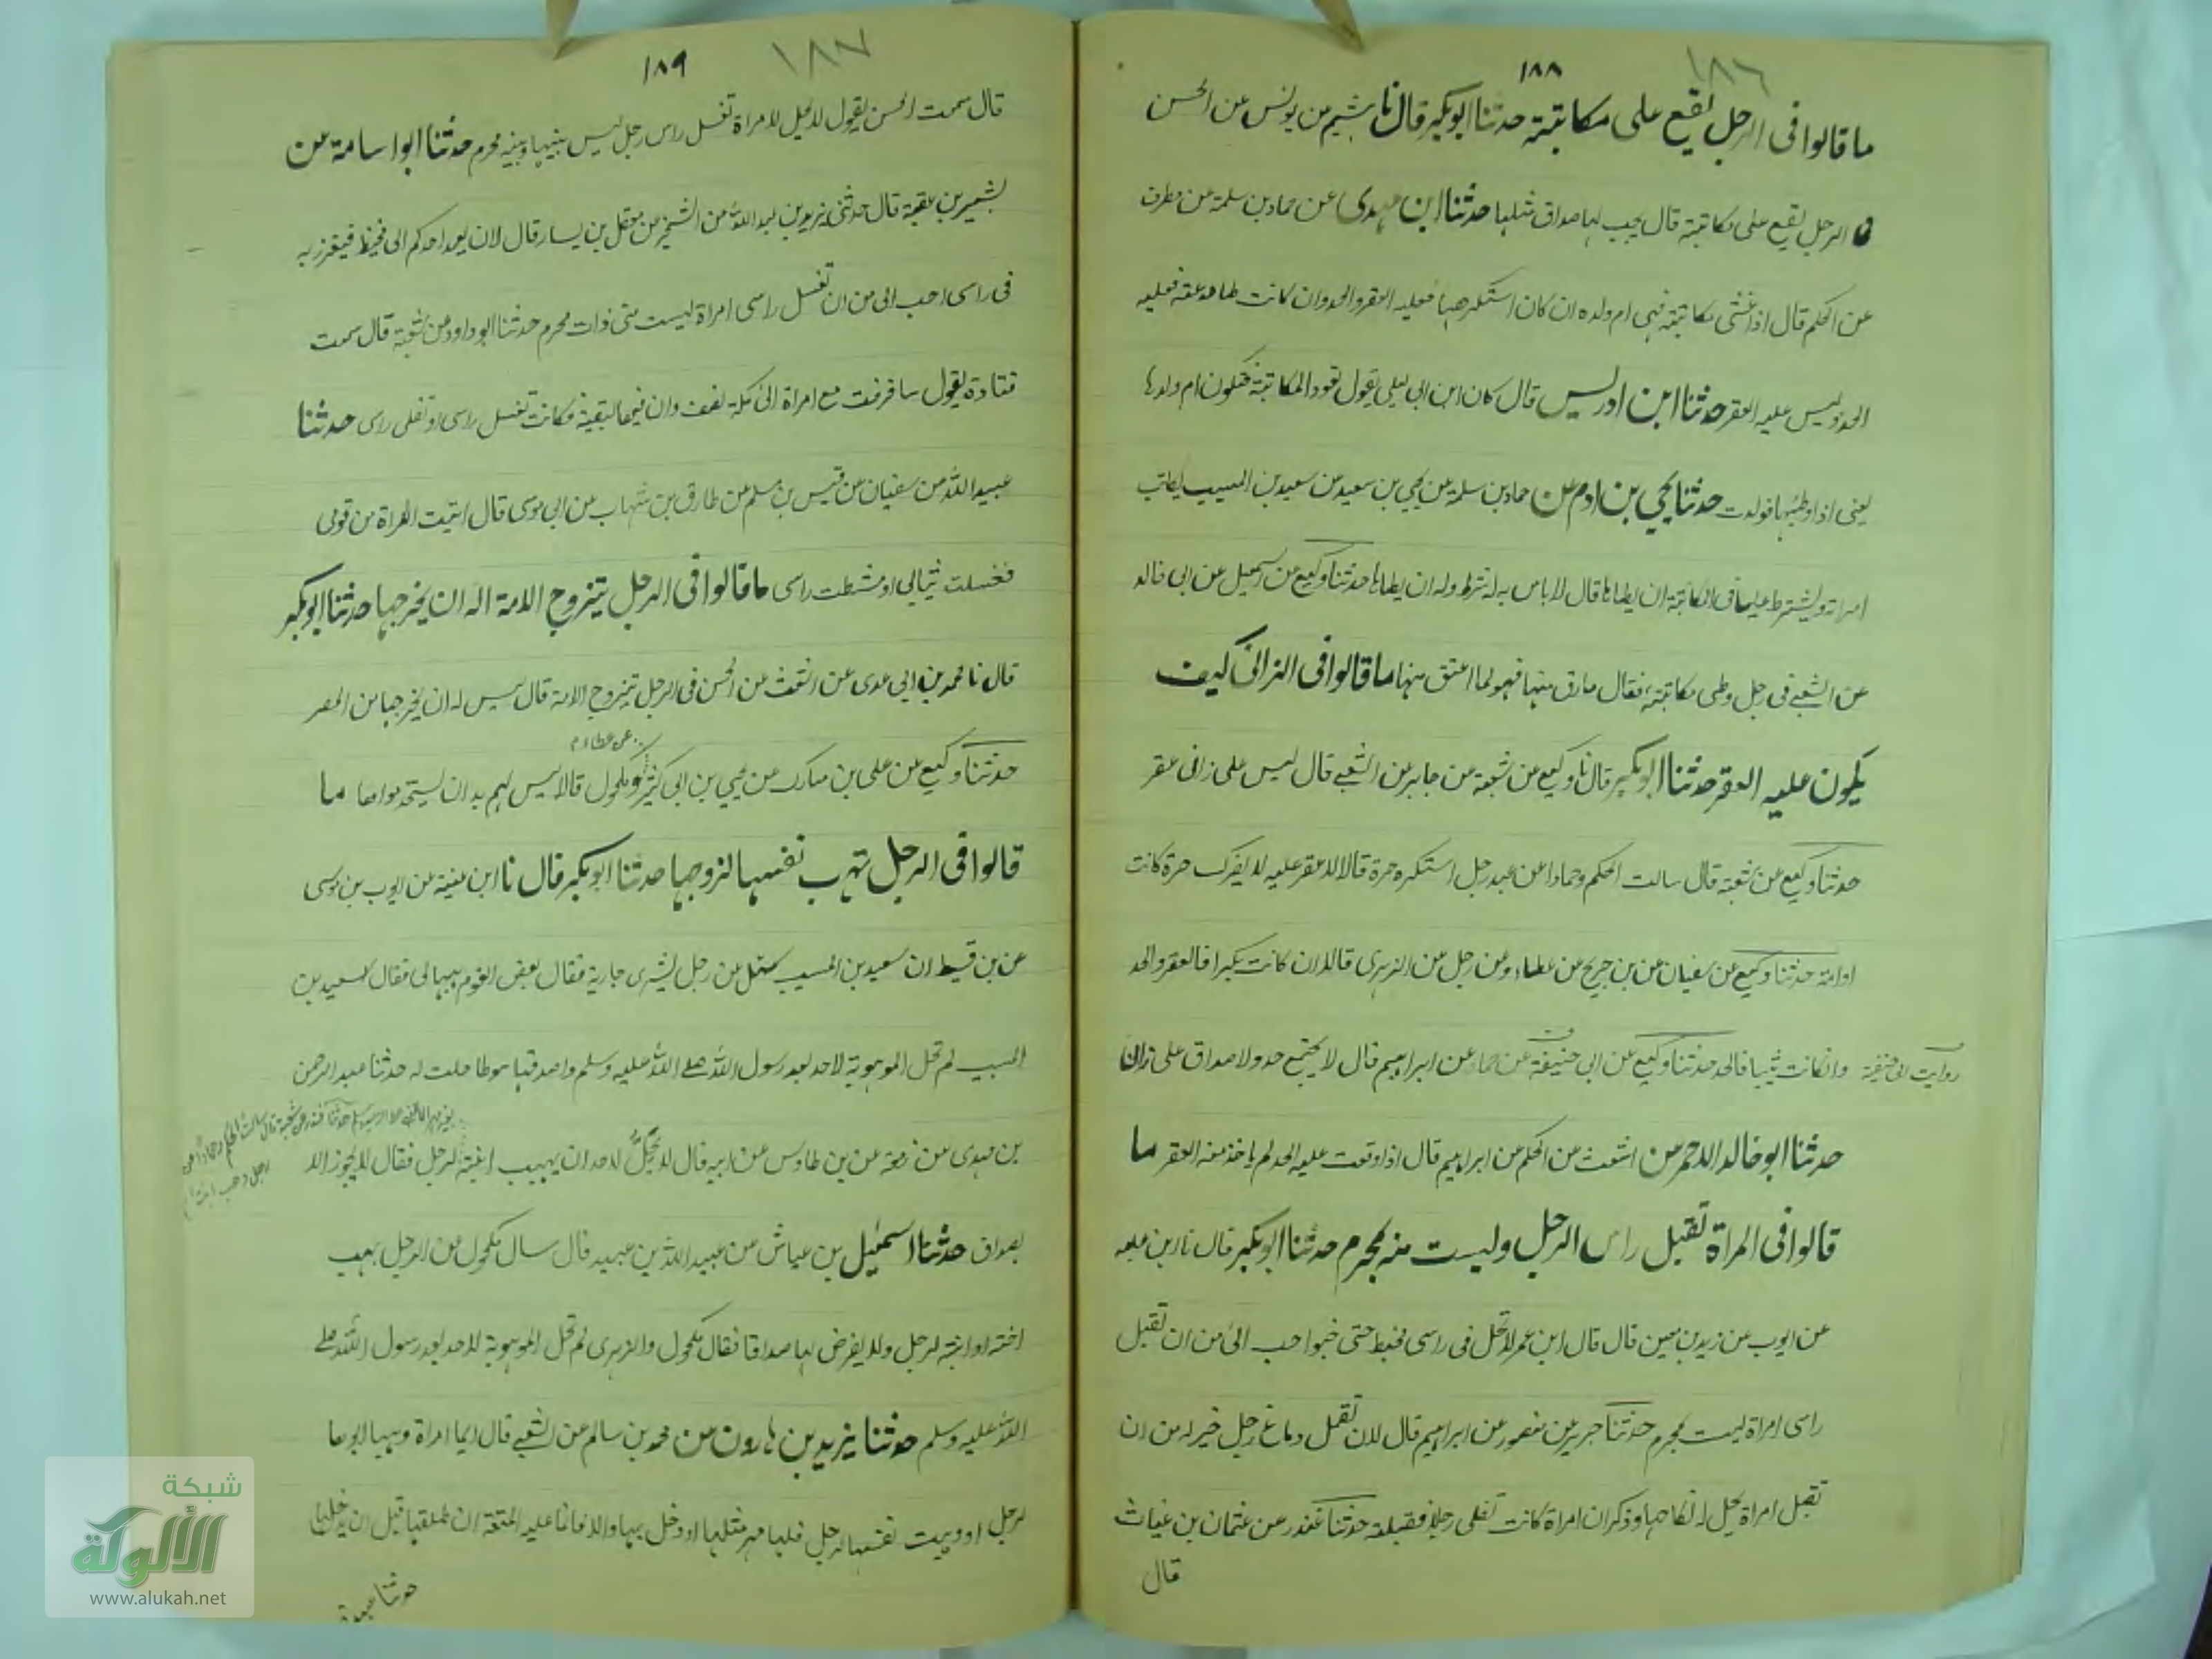 ١٨٦
١٨٨
ما قالوا فى الرجل يقع على مكاتبته حدثنا ابو بكر قال نا هشيم عن يونس عن الحسن
فى الرجل يقع على مكاتبة قال يجب لها صداق مثلها حدثنا ابن مهدى عن حماد بن سلمة عن مطرف
عن الحكم قال اذا غشى مكاتبته فهى ام ولده ان كان استكرهها فعليه العقر والحد وان كانت طاوعته فعليه
الحد وليس عليه العقر حدثنا ابن ادريس قال كان ابن ابى ليلى يقول تعود المكاتبة فتكون ام ولدها
يعنى اذا وطئها فولدت حدثنا يحيى بن ادم عن حماد بن سلمة عن يحيى بن سعيد عن سعيد بن المسيب يكاتب
امراته ويشترط عليها فى المكاتبة ان يطاها قال لا باس به له شرطه وله ان يطاها حدثنا وكيع عن اسمعيل عن ابى خالد
عن الشعبے فى رجل وطى مكاتبته فقال مارق منها فهو لما اعتق منها ما قالوا فى الزانى كيف
يكون عليه العقر حدثنا ابو بكر قال نا وكيع عن شعبة عن جابر عن الشعبے قال ليس على زانى عقر
حدثنا وكيع عن شعبة قال سالت الحكم وحمادا عن عبد رجل استكره حرة قالا لا عقر عليه لا يضرك حرة كانت
او امة حدثنا وكيع عن سفيان عن بن جريج عن عطاء وعن رجل عن الزهرى قالا ان كانت بكرا فالعقر والحد
وانكانت ثيبا فالحد حدثنا وكيع عن ابى حنيفة عن حماد عن ابراهيم قال لا يجتمع حد ولا صداق على زان
روايت ابى حنيفة
حدثنا ابو خالد الاحمر عن اشعث عن الحكم عن ابراهيم قال اذا وقعت عليه الحد لم ياخذ منه العقر ما
قالوا فى المراة تقبل راس الرجل وليست منه بمحرم حدثنا ابو بكر قال نا بن علية
عن ايوب عن زيد بن معين قال قال ابن عمر لا تحل فى راسى حتى احب الى من ان تقبل
راسى امراة ليست بمحرم حدثنا جرير عن منصور عن ابراهيم قال لان تقمل دماغ رجل خير له من ان
تقبل امراة يحل له نكاحها وذكر ان امراة كانت تفلى رجلا فقبلته حدثنا غندر عن عثمان بن غياث
قال
١٨٧
١٨٩
قال سمعت الحسن يقول لا يحل لامراة تغسل راس رجل ليس بينها وبينه محرم حدثنا ابوا سامة عن
بشير بن عقبة قال حدثنى يزيد بن عبد اللہ بن الشخير عن معقل بن يسار قال لان يعمد احدكم الى مخيط فيغرز به
فى راسى احب الى من ان تغسل راسى امراة ليست منى ذات محرم حدثنا ابو داود عن شعبة قال سمعت
قتادة يقول سافرت مع امراة الى مكة وكانت تغسل راسى او تفلى راسى حدثنا
عبيد اللہ عن سفيان عن قيس بن مسلم عن طارق بن شهاب عن ابى موسى قال اتيت امراة من قومى
فغسلت ثيابى او مشطت راسى ما قالوا فى الرجل يتزوج الامة اله ان يخرجها حدثنا ابو بكر
قال نا محمد بن ابى عدى عن اشعث عن الحسن فى الرجل يتزوج الامة قال ليس له ان يخرجها من المصر
عن عطاء
حدثنا وكيع عن على بن مبارك عن يحيى بن ابى كثير ومكحول قالا ليس لهم بد ان ما
قالوا فى الرجل تهب نفسها لزوجها حدثنا ابو بكر قال نا ابن عيينة عن ايوب بن موسى
عن بن قسيط ان سعيد بن المسيب سئل عن رجل يشرى جارية فقال بعض القوم هبها لى فقال سعيد بن
المسيب لم تحل الموهوبة لاحد بعد رسول اللہ صلے اللہ عليه وسلم واصدقها سوطا حلت له حدثنا عبد الرحمن
بن مهدى عن زمعة عن بن طاوس عن ابيه قال لا يحل لاحد ان يهب ابنته لرجل فقال لا يجوز الا
حدثنا غندر عن شعبة قال سالت الحكم وحمادا عن رجل وهب ابنته
بصداق حدثنا اسمعيل بن عياش عن عبيد اللہ بن عبيد قال سال مكحول عن الرجل يهب
اخته او ابنته لرجل ولا يفرض لها صداقا فقال مكحول والزهرى لم تحل الموهوبة لاحد بعد رسول اللہ صلے
اللہ عليه وسلم حدثنا يزيد بن هارون عن محمد بن سالم عن الشعبے قال ايما امراة وهبها ابوها
لرجل او وهبت نفسها لرجل فلها مهر مثلها او دخل بها والا فانما عليه المتعة ان طلقها قبل ان يدخل بها
حدثنا عبدة
شبكة
الألوكة
www.alukah.net